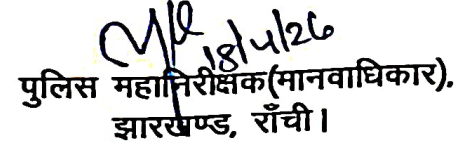 18/4/26
पुलिस महानिरीक्षक(मानवाधिकार),
झारखण्ड, राँची।